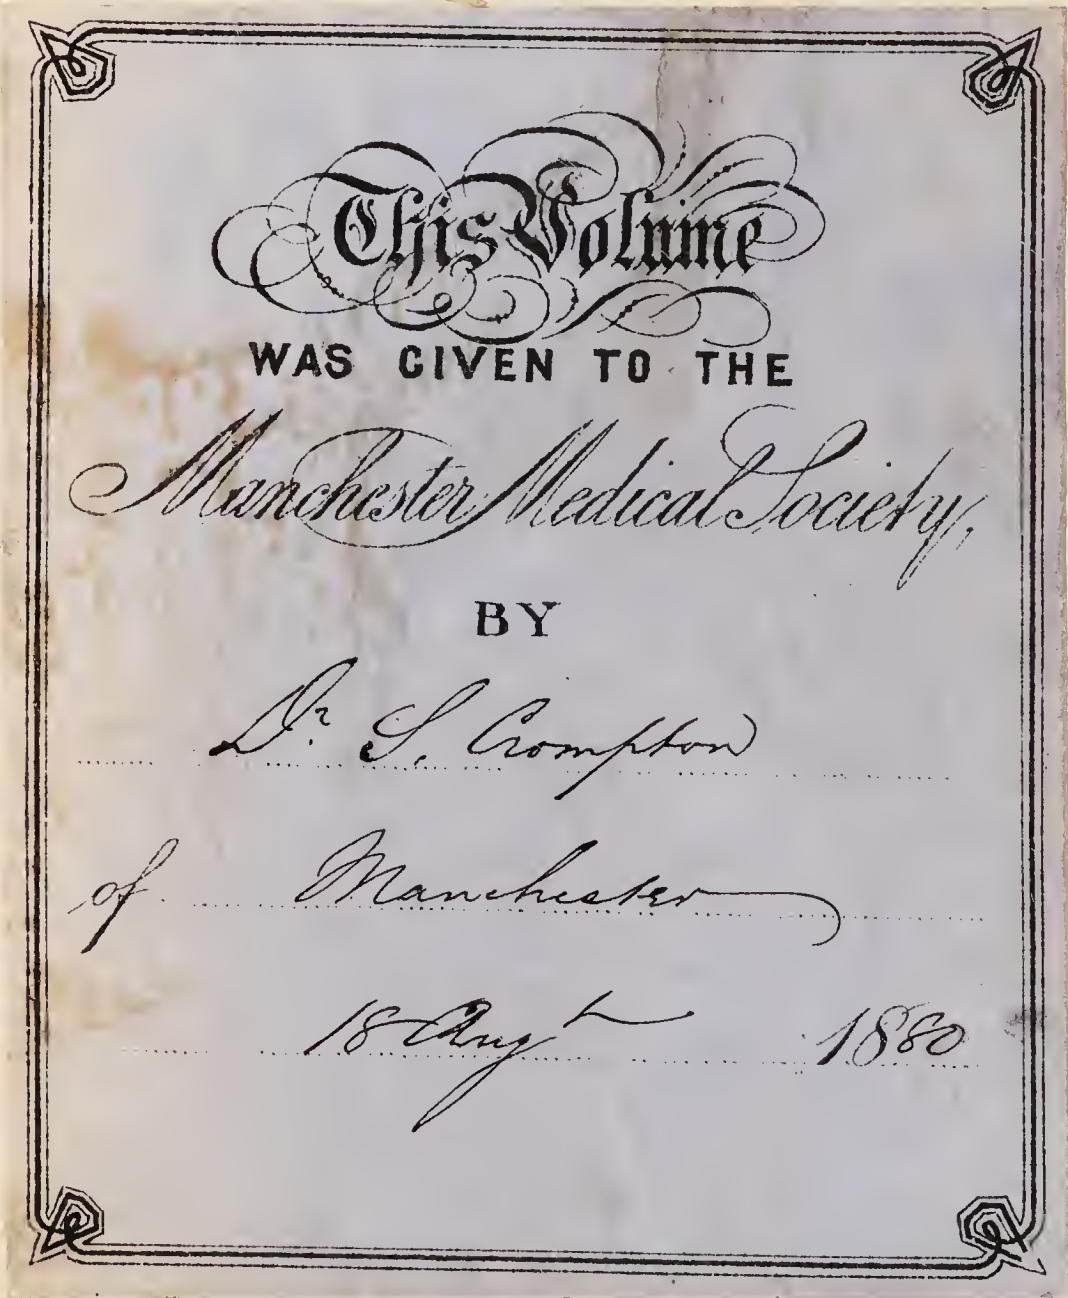 This Volume
WAS GIVEN TO THE
Manchester Medical Society,
BY
Dr. S. Crompton
of Manchester
18 Augt 1880